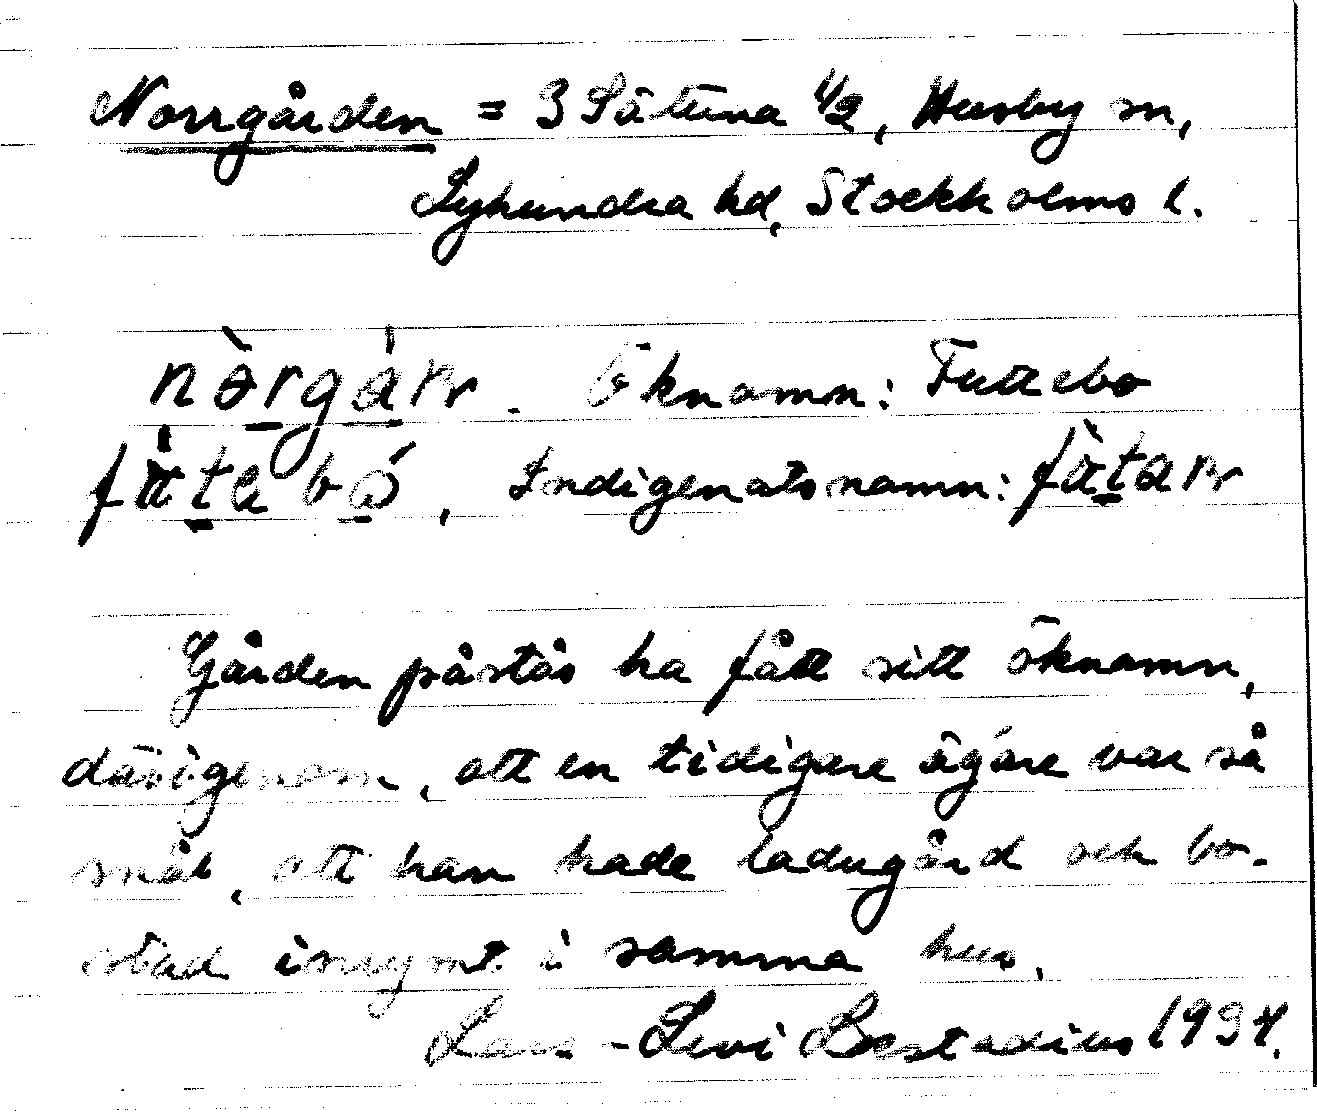 Norrgården = 3 Sätuna 1/2, Husby sn,
Lyhundra hd, Stockholms l.
nòrgár̨. Öknamn: Futtebo
fὰtebó, Indigenatsnamn: fὰtar
Gården påstås ha fått sitt öknamn,
därigenom, att en tidigare ägare var så
snål, att han hade ladugård och bo-
stad inrymt i samma hus.
Lars-Levi Læstadius 1934.